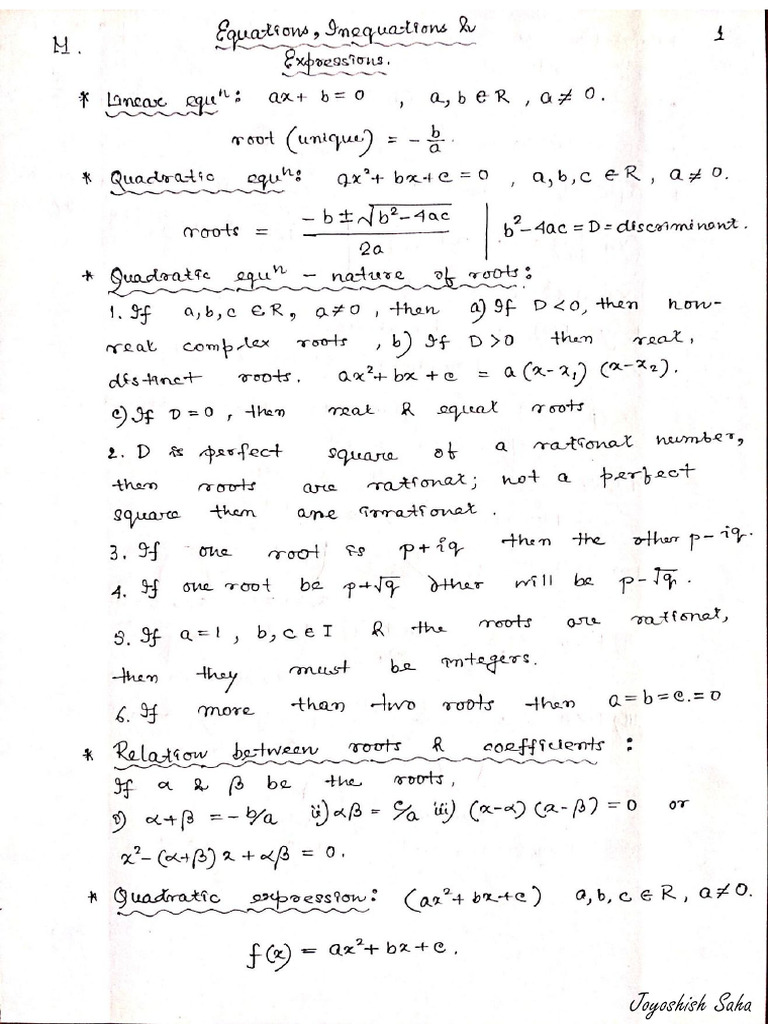 M.
Equations, Inequations &
1
Expressions.
* Linear equⁿ: ax + b = 0 , a, b ∈ R , a ≠ 0.
root (unique) = - b/a.
* Quadratic equⁿ: ax² + bx + c = 0 , a, b, c ∈ R , a ≠ 0.
roots = (-b ± √(b² - 4ac))/2a | b² - 4ac = D = discriminant.
* Quadratic equⁿ - nature of roots:
1. If a, b, c ∈ R, a ≠ 0, then a) If D < 0, then non-
real complex roots , b) If D > 0 then real,
distinct roots. ax² + bx + c = a (x - x₁) (x - x₂).
c) If D = 0 , then real & equal roots
2. D is perfect square of a rational number,
then roots are rational; not a perfect
square then are irrational.
3. If one root is p + iq then the other p - iq.
4. If one root be p + √q other will be p - √q.
5. If a = 1 , b, c ∈ I & the roots are rational,
then they must be integers.
6. If more than two roots then a = b = c. = 0
* Relation between roots & coefficients :
If α & β be the roots,
i) α + β = - b/a ii) αβ = c/a iii) (x - α) (x - β) = 0 or
x² - (α + β) x + αβ = 0.
* Quadratic expression: (ax² + bx + c) a, b, c ∈ R , a ≠ 0.
f(x) = ax² + bx + c.
Joyoshish Saha